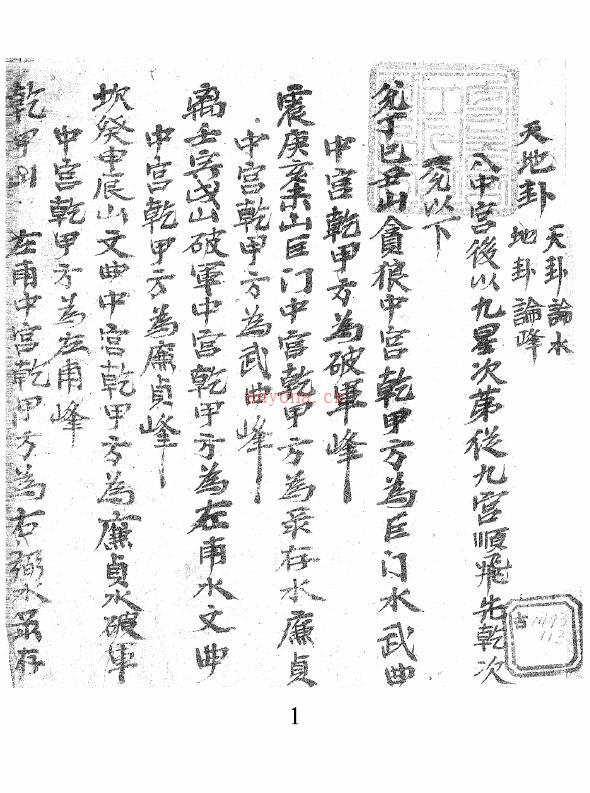 天地卦
天卦論水
地卦論峰
入中宮後以九星次第從九宮順飛先乾次
兌以下
兌丁巳丑山貪狼中宮乾甲方為巨门水武曲
中宮乾甲方為破軍峰
震庚亥未山巨门中宮乾甲方為彔存水廉貞
中宮乾甲方為武曲峰
离壬寅戌山破軍中宮乾甲方為左甫水文曲
中宮乾甲方為廉貞峰
坎癸申辰山文曲中宮乾甲方為廉貞水破軍
中宮乾甲方為左甫峰
乾甲 左甫中宮乾甲方為右弼水彔存
古
1